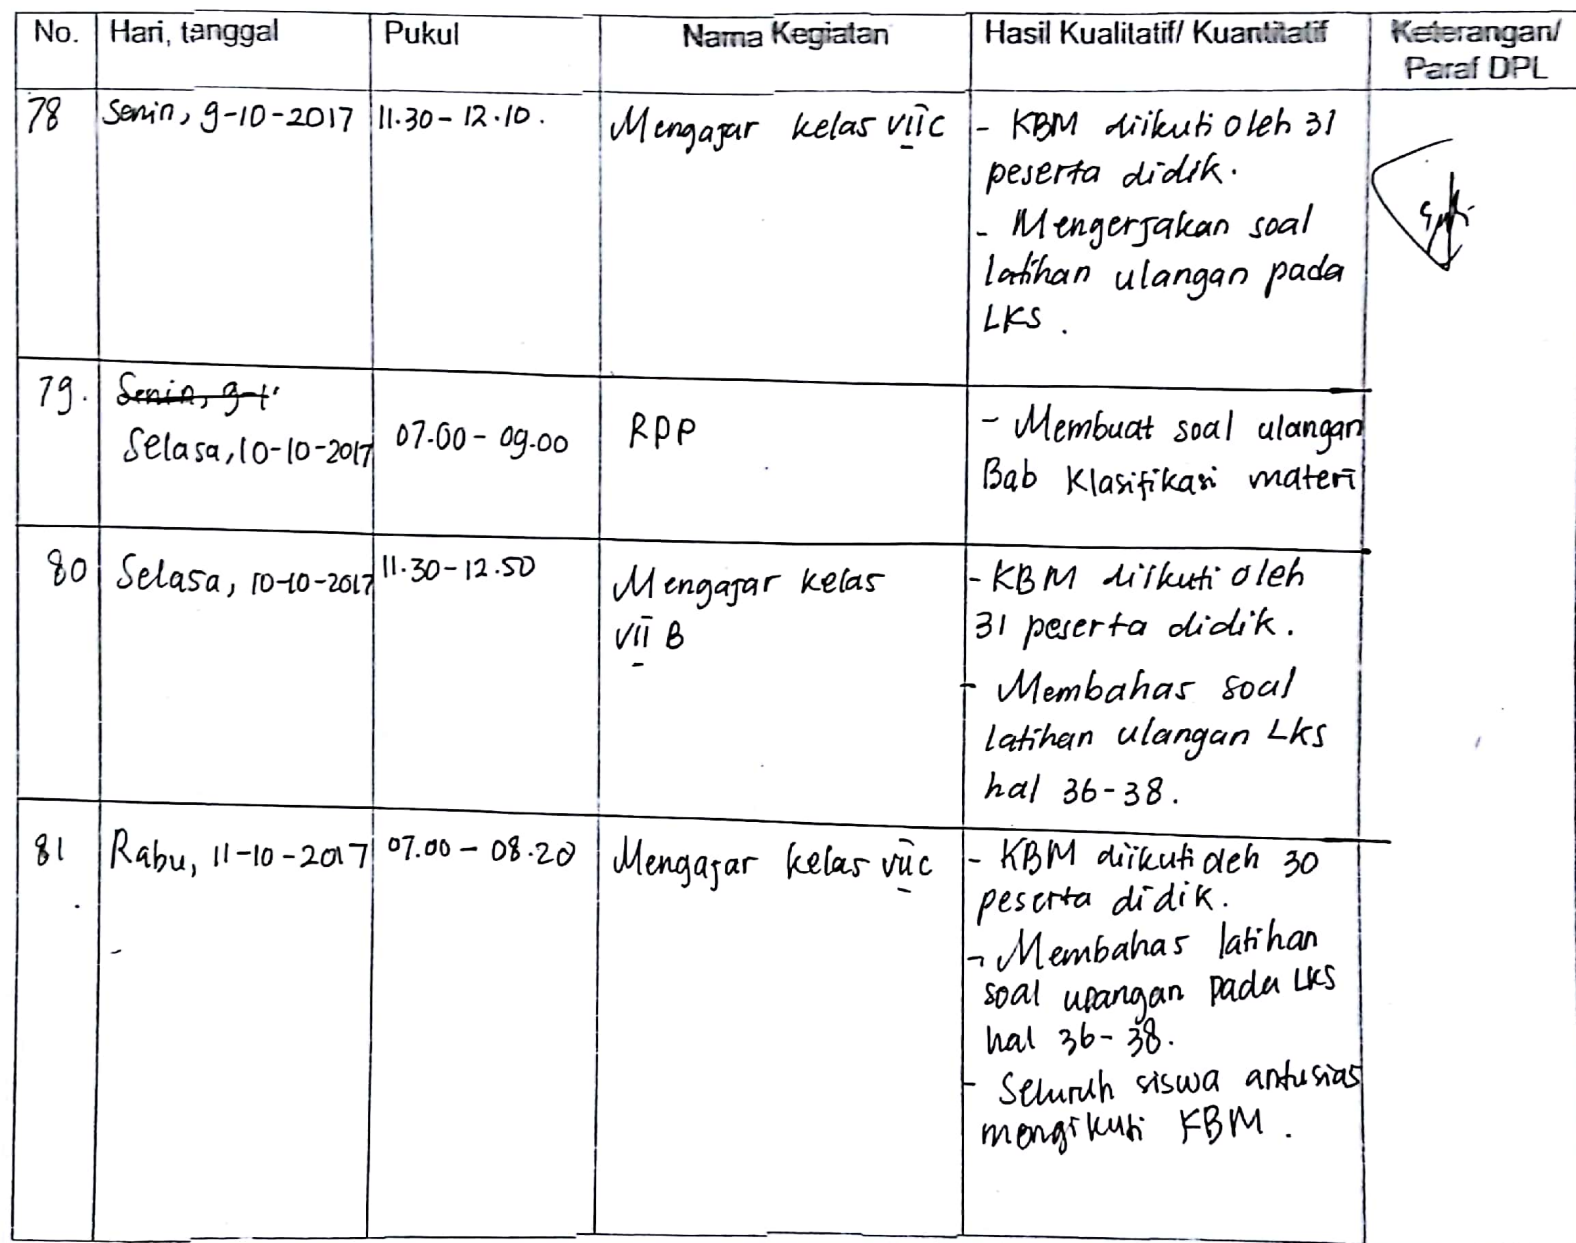 No. Hari, tanggal Pukul Nama Kegiatan Hasil Kualitatif/ Kuantitatif Keterangan/
Paraf DPL
78 Senin, 9-10-2017 11.30 - 12.10. Mengajar kelas VII C - KBM diikuti oleh 31
peserta didik.
- Mengerjakan soal
latihan ulangan pada
LKS.
79. Senin, 9-1
Selasa, 10-10-2017 07.00 - 09.00 RPP - Membuat soal ulangan
Bab Klasifikasi materi
80 Selasa, 10-10-2017 11.30 - 12.50 Mengajar kelas - KBM diikuti oleh
VII B 31 peserta didik.
- Membahas soal
latihan ulangan Lks
hal 36-38.
81 Rabu, 11-10-2017 07.00 - 08.20 Mengajar kelas VII C - KBM diikuti oleh 30
peserta didik.
- Membahas latihan
soal ulangan pada LKS
hal 36-38.
- Seluruh siswa antusias
mengikuti KBM.